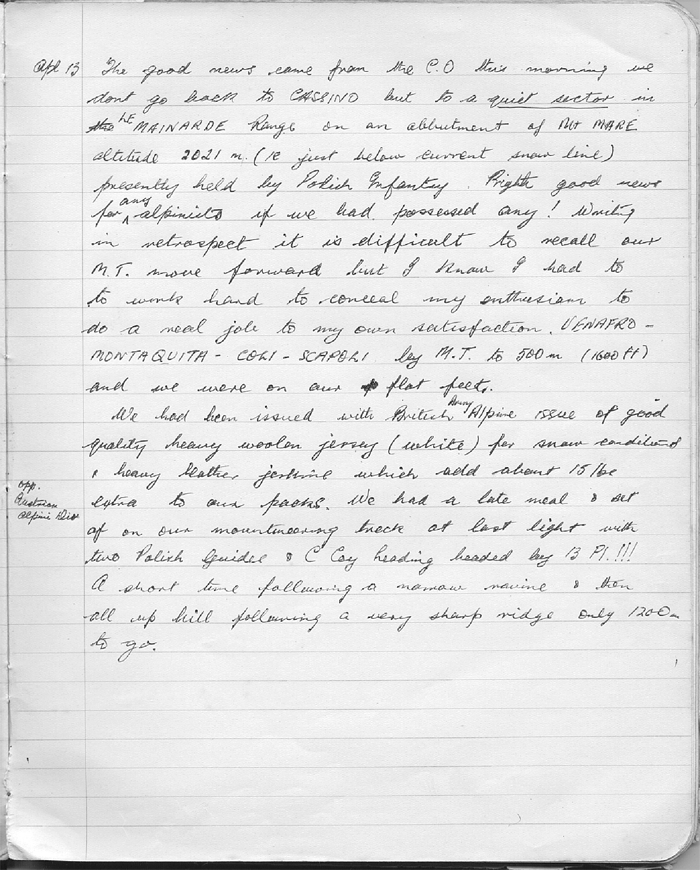 Apl 13 The good news came from the C.O this morning we
dont go back to CASSINO but to a quiet sector in
the LE MAINARDE Range on an abbutment of Mt MARE
altitude 2021 m. (ie just below current snow line)
presently held by Polish Infantry. Right good news
for any alpinists if we had possessed any! Writing
in retrospect it is difficult to recall our
M.T. move forward but I know I had to
to work hard to conceal my enthusiasm to
do a neat job to my own satisfaction. VENAFRO -
MONTAQUITA - COLI - SCAPOLI by M.T. to 500 m (1600 ft)
and we were on our flat feet.
We had been issued with British Army Alpine issue of good
quality heavy woolen jersey (white) for snow conditions
& heavy leather jerkins which add about 15 lbs
extra to our packs. We had a late meal & set
of on our mountineering treck at last light with
opp.
Austrian
alpine Divs
two Polish Guides & C Coy heading headed by 13 Pl.!!!
A short time following a narrow ravine & then
all up hill following a very sharp ridge only 1200m
to go.